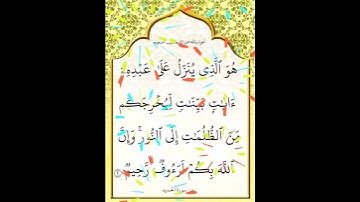 هُوَ ٱلَّذِى يُنَزِّلُ عَلَىٰ عَبْدِهِۦٓ
ءَايَٰتٍۭ بَيِّنَٰتٍ لِّيُخْرِجَكُم
مِّنَ ٱلظُّلُمَٰتِ إِلَى ٱلنُّورِ ۚ وَإِنَّ
ٱللَّهَ بِكُمْ لَرَءُوفٌ رَّحِيمٌ